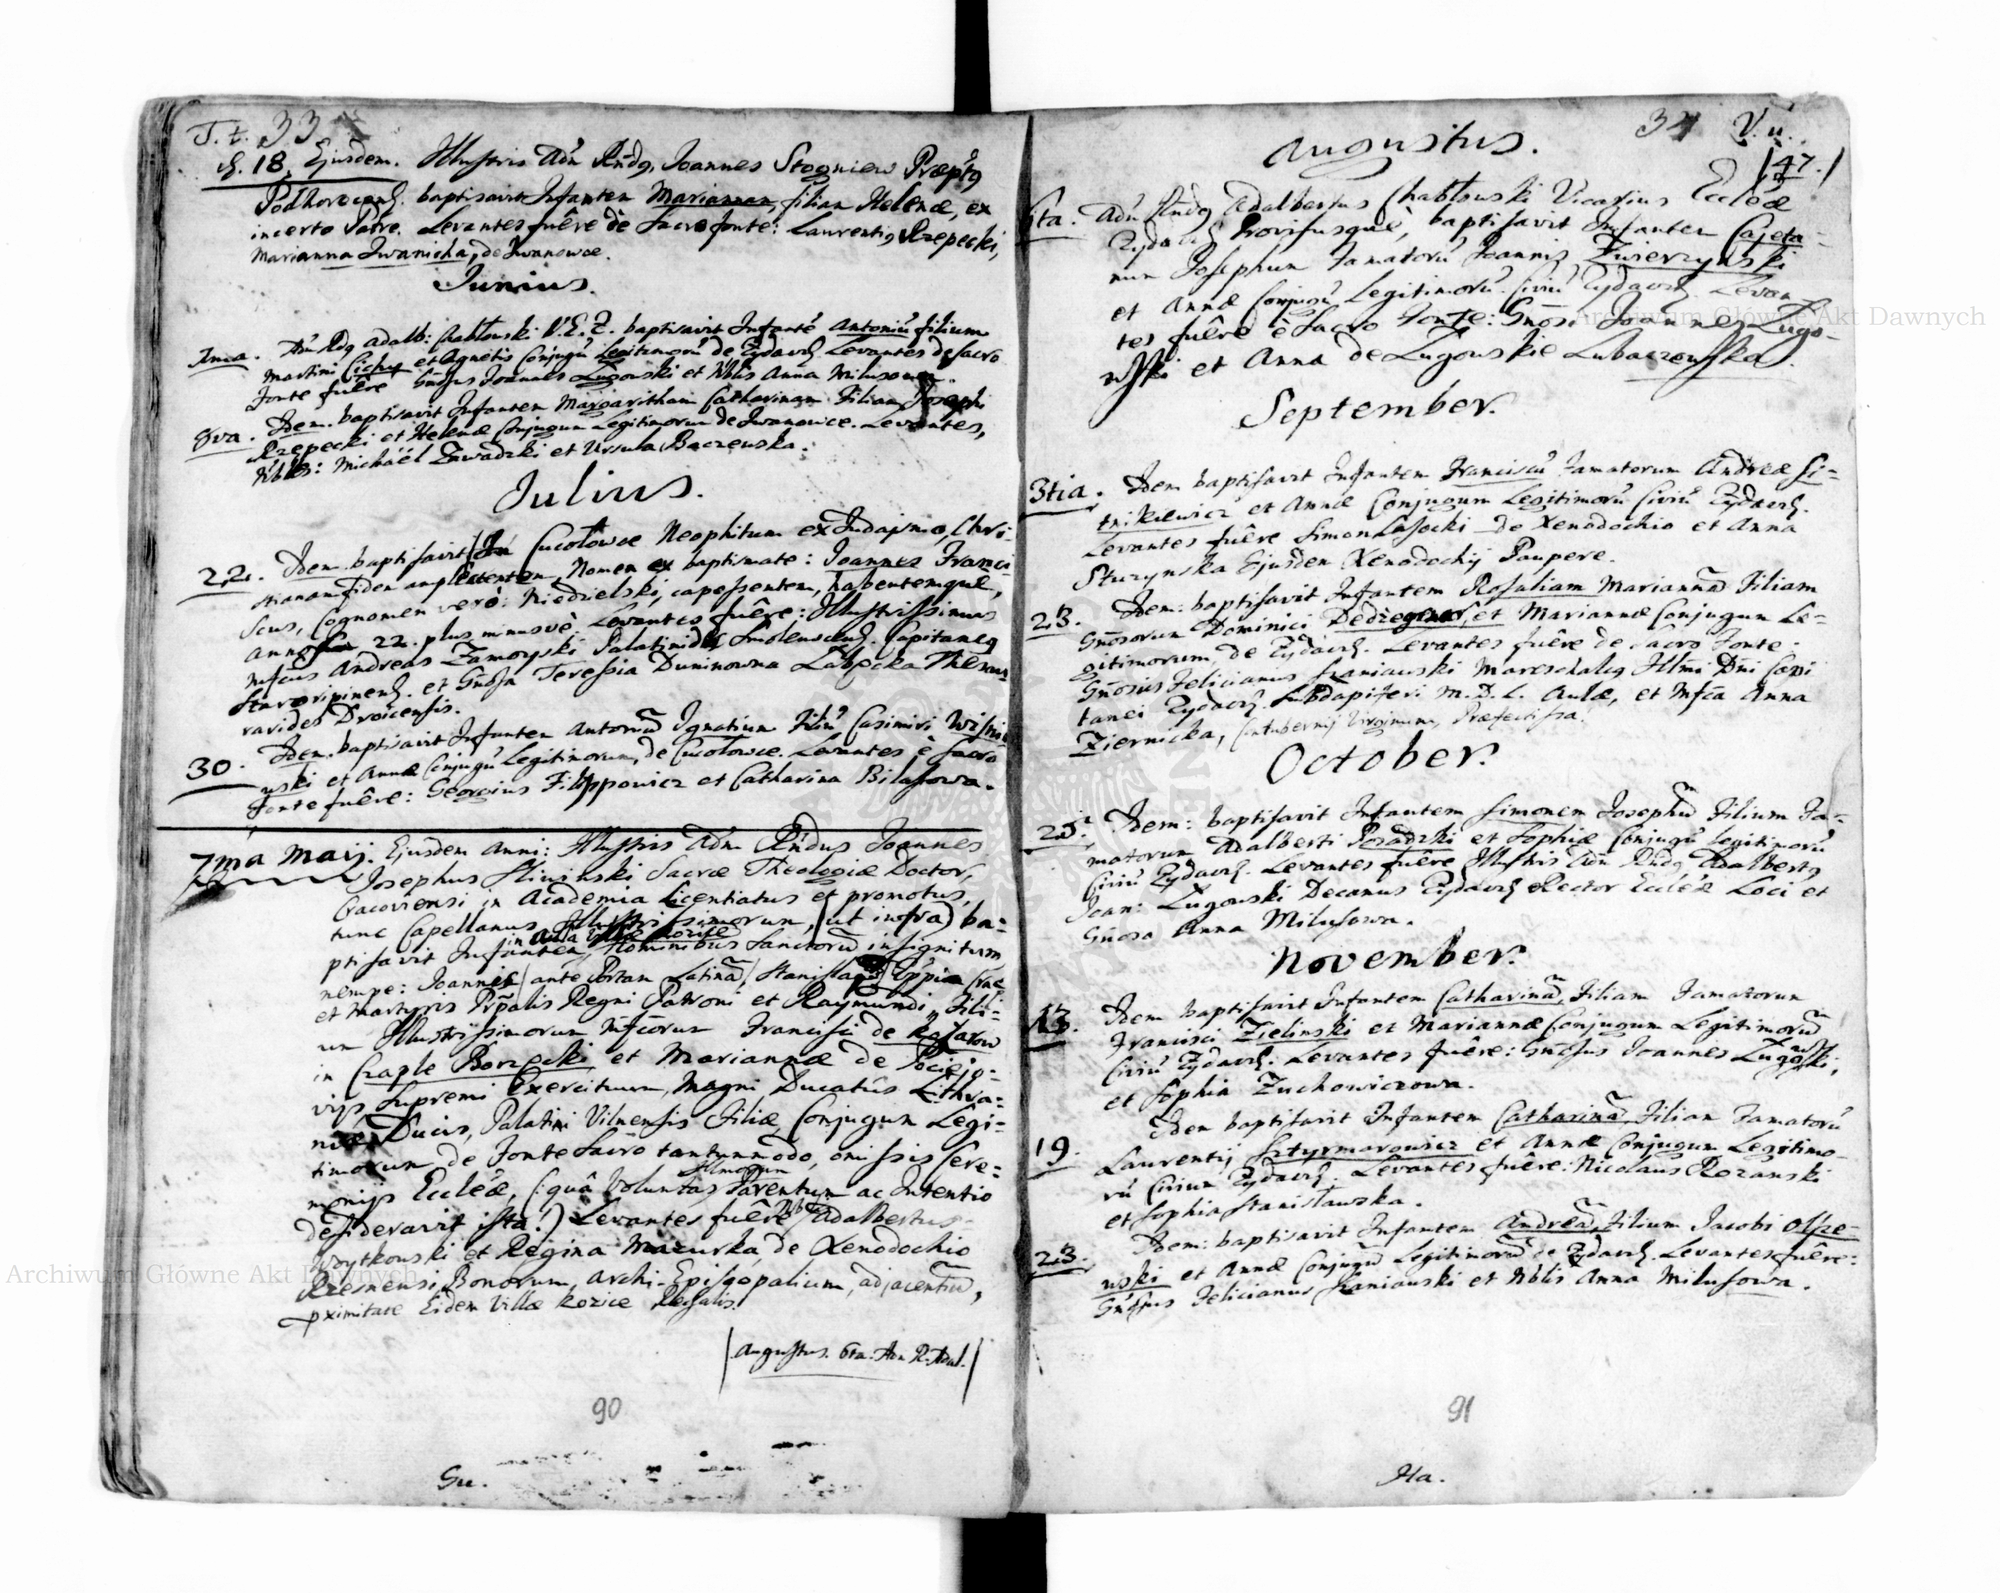 T. t. 33
d. 18. Ejusdem. Illustris Adm Rndq, Joannes Stogniew Præptq
Podhorecens. baptisavit Infantem Mariannam, filiam Helenæ, ex
incerto Patre. Levantes fuêre de Sacro fonte: Laurentiq Rzepecki,
Marianna Iwanicka, de Iwanowce.
Junius.
1ma. Am Rdq Adalb: Chablouski V. E. Z. baptisavit Infanté Antoniũ filium
Martini Cichy et Agnetis Conjugũ Legitimorũ de Zydacz. Levantes de Sacro
fonte fuêre Gnosus Joannes Lugowski et Nblis Anna Milusowa.
8va. Idem baptisavit Infantem Margaritham Catharinam Filiam Josephi
Rzepecki et Helenæ Conjugum Legitimorum de Iwanowce. Levantes,
Nbles: Michaël Zawadzki et Ursula Baczewska.
Julius.
22. Idem baptisavit in Cucotowce Neophitum ex Judaismo, Chri-
stianam fidem amplectentem, Nomen ex baptismate: Joannes Franci-
scus, Cognomen verò: Niedzielski, capessentem, habentemque,
Anno 22. plus minusvè. Levantes fuêre: Illustrissimus
Mfcus Andreas Zamoyski Palatinides Smolenscens. Capitaneq
Staroripinens. et Gnosa Teressia Duninowna Labęcka Thesau-
rarides Drvicensis.
30. Idem baptisavit Infantem Antoniũ Ignatium Filiũ Casimiri Wisnio-
wski et Annæ Conjugũ Legitimorum, de Cucotowce. Levantes è Sacro
fonte fuêre: Georgius Filippowicz et Catharina Bilasowa.
7ma Maij. Ejusdem Anni: Illustris Adm Rndus Joannes
Josephus Sliwinski Sacræ Theologiæ Doctor,
Cracoviensi in Academia Licentiatus et promotus,
tunc Capellanus Illustrissimorum, (ut infra) ba-
in Aula Villæ Kozice
ptisavit Infantem, Nominibus Sanctorũ insignitum
nempe: Joannis ante Portam Latinã, Stanislai Eppi Crac
et Martyris Prpalis Regni Patroni et Raymundi, Fili-
um Illustrissimorum Mfcorum Francisci de
in Czaple Borzęcki, et Mariannæ de Pociejo-
vijs Supremi Exercituum, Magni Ducatûs Lithva-
niæ Ducis, Palatini Vilnensis Filiæ, Conjugum Legi-
timorum de Fonte Sacro tantummodo, omissis Cere-
monijs Eccleæ, (quâ Voluntas Illmorum Parentum ac Intentio
desideravit ista.) Levantes fuêre Adalbertus
Woytkowski et Regina Mazurka, de Xenodochio
Rzesnensi, Bonorum, Archi-Episcopalium, adjacentiũ,
pximitate Eidem Villæ Kozice Regalis.
Augustus. 6ta. Am R. Adal.
90
Gu.
34 V. u.
47.
Augustus.
6ta. Adm Rndq Adalbertus Chablouski Vicarius Eccleæ
Zydacz Provisusque, baptisavit Infantem Cajeta-
num Josephum Famatorũ Joannis Zwierzynski
et Annæ Conjugũ Legitimorũ. Civiũ Zydacz. Levan-
tes fuêre è Sacro Fonte: Gnosi Joannes Lugo-
wski et Anna de Lugowskie Lubaczewska.
September.
3tia. Idem baptisavit Infantem Franciscũ Famatorum Andreæ Si-
tnikiewicz et Annæ Conjugum Legitimorũ Civiũ Zydacz.
Levantes fuêre Simon Lasocki de Xenodochio et Anna
Sturynska Ejusdem Xenodochij Paupere.
23. Idem: baptisavit Infantem Rosaliam Mariannã Filiam
Gnosorum Dominici et Mariannæ Conjugum Le-
gitimorum, de Zydacz. Levantes fuêre de Sacro Fonte
Gnosus Felicianus Kraniauski Mareschalq Illmi Dni Capi
tanei Zydacz Subdapiferi M. D. L. Aulæ, et Mfca Anna
Ziernicka, Contubernij Virginum, Præfectissa.
October.
25. Idem: baptisavit Infantem Simonem Josephũ Filium Fa-
matorum Adalberti Posadzki et Sophiæ Conjugũ Legitimorũ
Civiũ Zydacz. Levantes fuêre Illustris Adm Rndq Adalbertq
Joan: Lugowski Decanus Zydacz Rector Eccleæ Loci et
Gnosa Anna Milusowa.
November.
13. Idem baptisavit Infantem Catharinã, Filiam Famatorum
Francisci Zielinski et Mariannæ Conjugum Legitimorũ
Civiũ Zydacz. Levantes fuêre: Gnosus Joannes Lugowski,
et Sophia Zuchowiczowa.
19. Idem baptisavit Infantem Catharinã, Filiam Famatorũ
Laurentij Sztyrmarowicz et Annæ Conjugum Legitimo-
rũ Civium Zydacz. Levantes fuêre: Nicolaus Rozanski
et Sophia Stanislawska.
23. Idem: baptisavit Infantem Andreã, Filium Jacobi Olsze-
wski et Annæ Conjugũ Legitimorũ de Zydacz. Levantes fuêre:
Gnosus Felicianus Kraniauski et Nblis Anna Milusowa.
91
Ha.
Archiwum Główne Akt Dawnych
Archiwum Główne Akt Dawnych